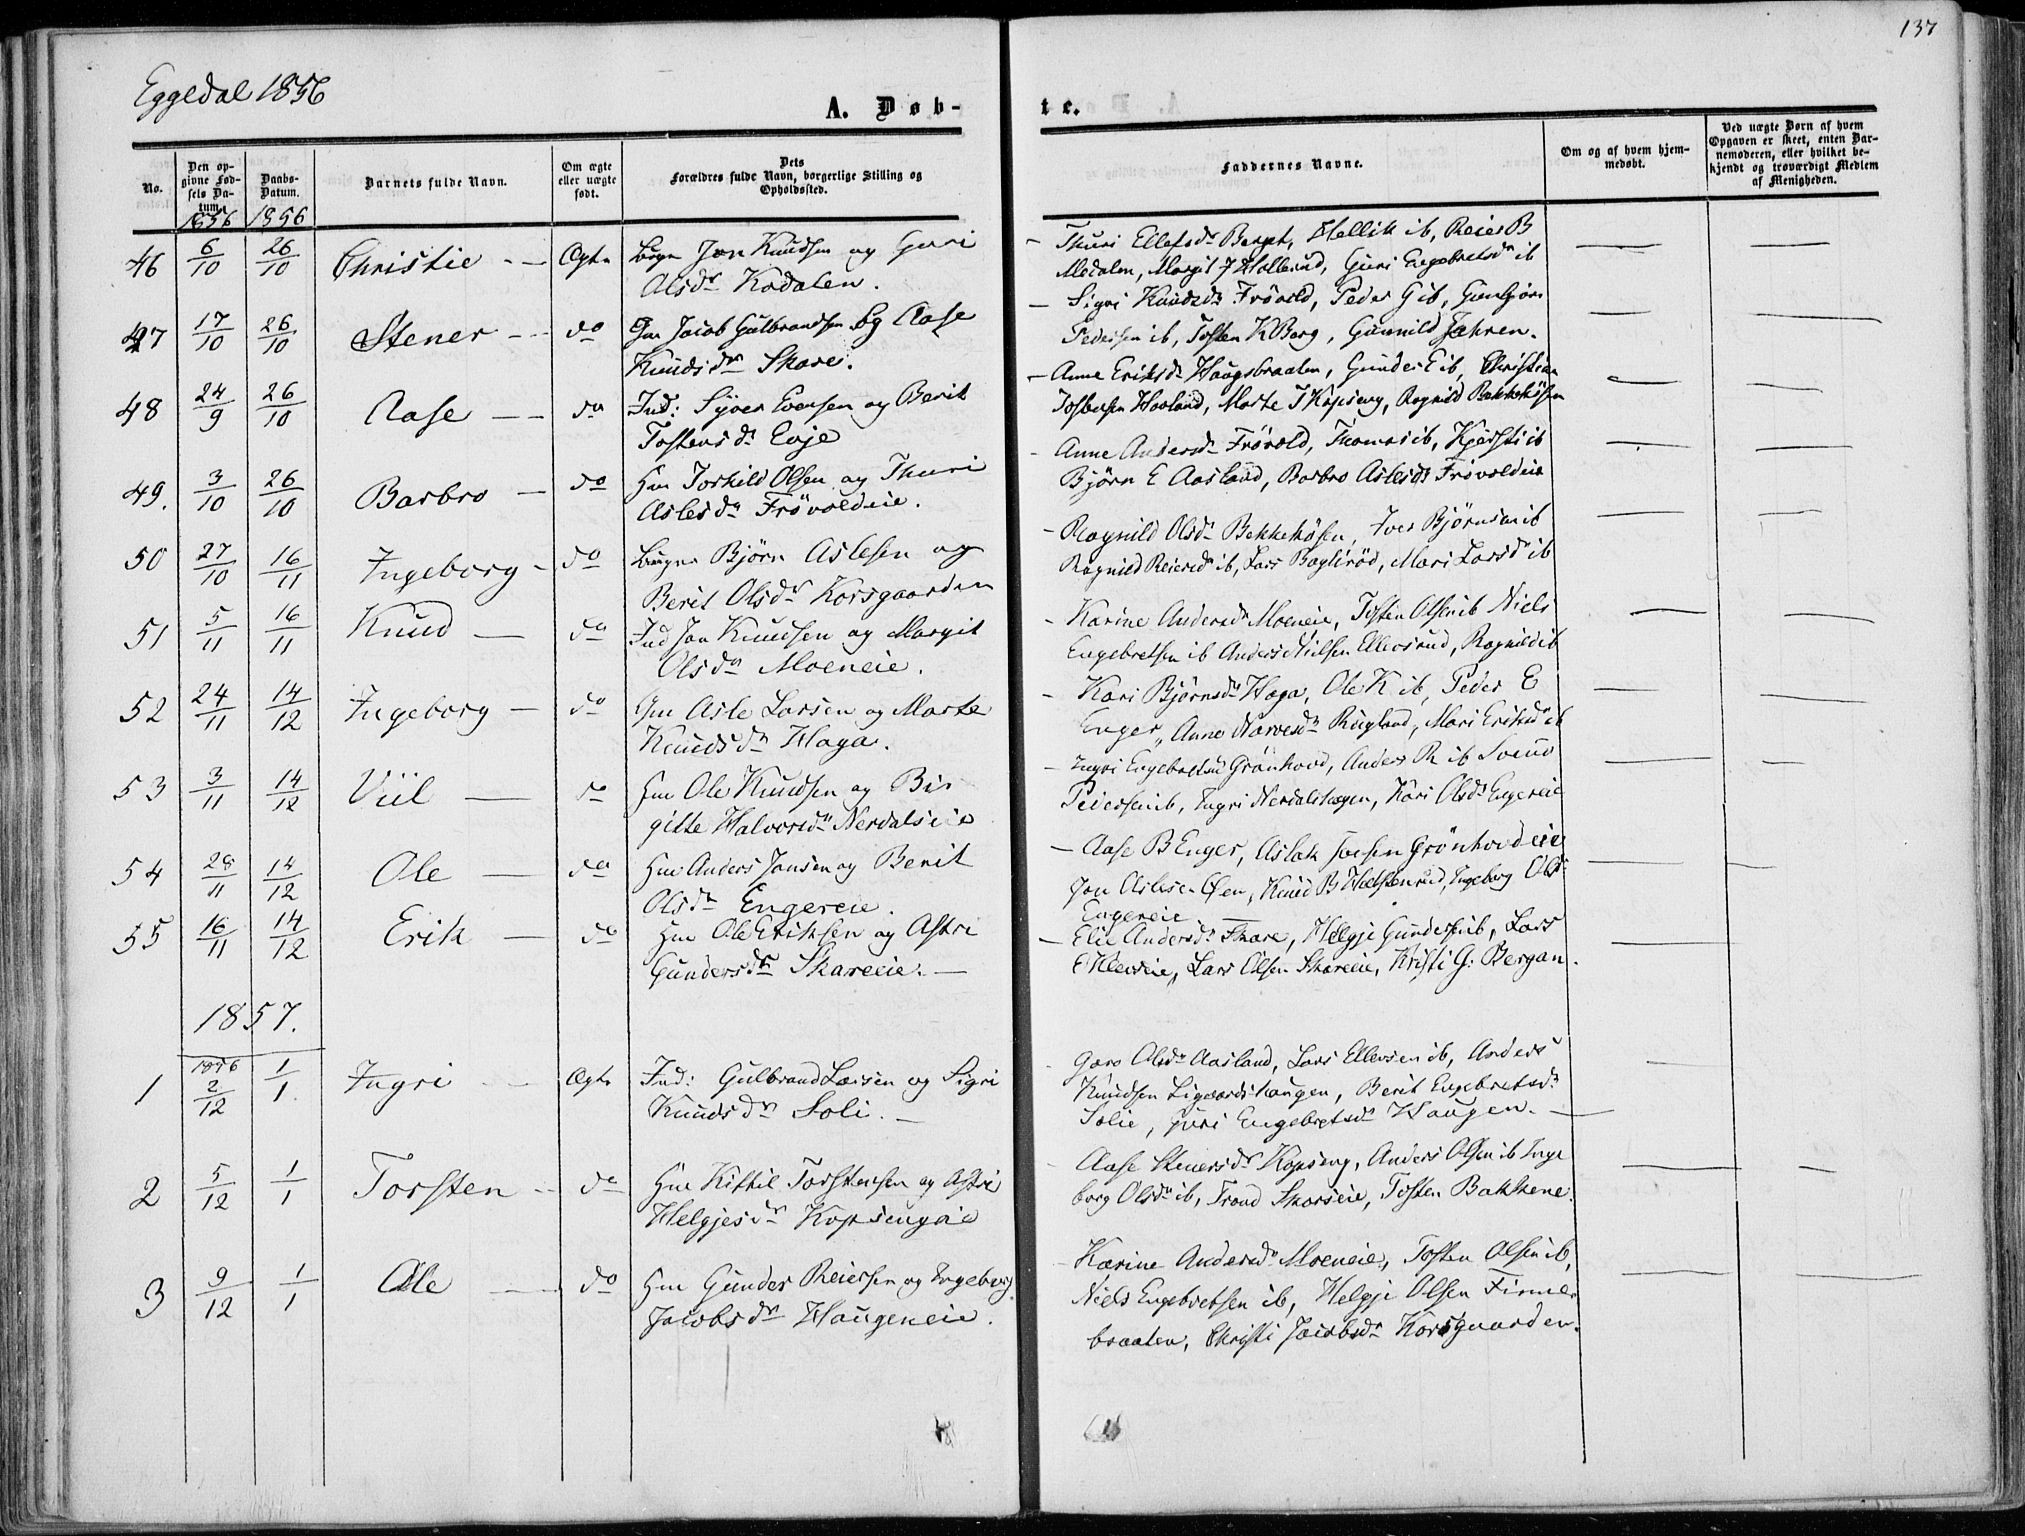 137
Eggedal 1856
A. Døb-
te.
No.
Den op-
givne Fød-
sels Da-
tum.
1856
Daabs-
Datum.
1856
Barnets fulde Navn.
Om ægte
eller uægte
født.
Dets
Forældres fulde Navn, borgerlige Stilling og
Opholdssted.
Faddernes Navne.
Om og af hvem hjem-
medøbt.
Ved uægte Børn af hvem
Opgaven er skeet, enten Bar-
nemoderen, eller hvilket be-
kjendt og troværdigt Medlem
af Menigheden.
46 6/10 26/10 Christie Ægte Jon Knudsen og Guri
Olsdr Kodalen.
Thuri Ellefsdr Hellik ib, Reier B
Medalen, Margit J Guri Engebretsdr ib
47 17/10 26/10 Stener do Gm Jacob Gulbrandsen og Aase
Knudsdr Skare.
Sigri Knudsdr Frövold, Peder G ib, Gunbjörn
Pedersen ib, Tosten K Berg, Gunnild
48 24/9 26/10 Aase do Ind: Syver Evensen og Berit
Tostensdr Eoje
Anne Eriksdr Haugsbraaten, Gunder E ib, Christian
Hovland, Marte T Kopseng, Ragnild Bekkehösen
49. 3/10 26/10 Barbro do Hm Torkild Olsen og Thuri
Aslesdr Frövoldeie.
Anne Andersdr Frövold, Thomas ib, Kjersti ib
Björn E Aasland, Barbro Aslesdr Frövoldeie
50 27/10 16/11 Ingeborg do Björn Aslesen og
Berit Olsdr Korsgaarden
Ragnild Olsdr Bekkehösen, Iver Björnsen ib
Ragnild Reiersdr ib, Lars Baglieröd, Mari Larsdr ib
51 5/11 16/11 Knud do Ind Jon Knudsen og Margit
Olsdr Moeneie.
Karine Andersdr Moeneie, Tosten Olsen ib Niels
Engebretsen ib Anders Nielsen Ellevsrud, Ragnild ib
52 24/11 14/12 Ingeborg do Gm Asle Larsen og Marte
Knudsdr Haga.
Kari Björnsdr Haga, Ole K ib, Peder E
Enger, Anne Narvesdr Rugland, Mari Eriksdr ib
53 3/11 14/12 Viil do Hm Ole Knudsen og Bir
gitte Halvorsdr Nerdalseie
Ingri Engebretsdr Grönhovd, Anders R ib Svend
Pedersen ib, Ingri Nerdalshagen, Kari Olsdr Engereie
54 28/11 14/12 Ole do Hm Anders Jonsen og Berit
Olsdr Engereie.
Aase B Enger, Aslak Grönhovdeie
Jon Aslesen Øen, Knud B Ingeborg Olsdr
Engereie
55 16/11 14/12 Erik do Hm Ole Eriksen og Astri
Gundersdr Skareeie.
Elie Andersdr Skare, Helgje Gundersen ib, Lars
Lars Olsen Skareeie, Kristi G: Bergan.
1857.
1 1856 2/12 1/1. Ingri Ægte Ind: Gulbrand Larsen og Sigri
Knudsdr Soli.
Goro Olsdr Aasland, Lars Ellevsen ib, Anders
Knudsen Ligaardshaugen, Berit Engebretsdr
Solie, Guri Engebretsdr Haugen.
2 5/12 1/1 Torsten do Hm Kittil Torstensen og Astri
Helgjesdr Kopsengeie
Aase Stenersdr Kopseng, Anders Olsen ib Inge
borg Olsdr ib, Trond Skareeie, Tosten Bakkene.
3 9/12 1/1 Ole do Hm Gunder Reiersen og Ingeborg
Jacobsdr Haugeneie.
Karine Andersdr Moeneie, Tosten Olsen ib,
Niels Engebretsen ib, Helgje Olsen Finne
braaten, Christi Jacobsdr Korsgaarden.